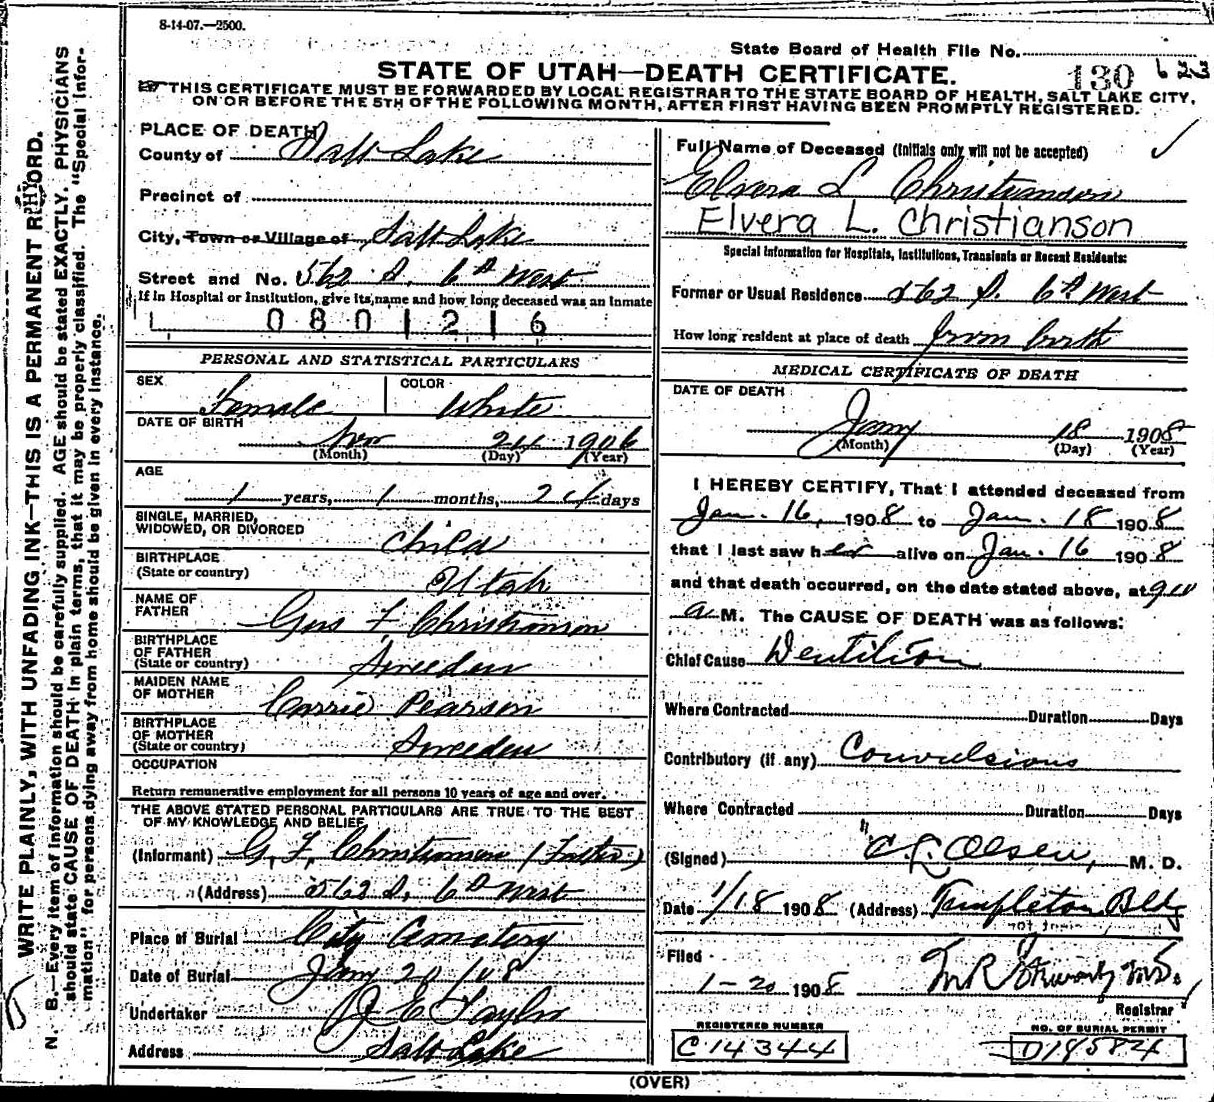 8-14-07.—2500.
State Board of Health File No.
130 622
STATE OF UTAH—DEATH CERTIFICATE.
THIS CERTIFICATE MUST BE FORWARDED BY LOCAL REGISTRAR TO THE STATE BOARD OF HEALTH, SALT LAKE CITY,
ON OR BEFORE THE 5TH OF THE FOLLOWING MONTH, AFTER FIRST HAVING BEEN PROMPTLY REGISTERED.
WRITE PLAINLY, WITH UNFADING INK—THIS IS A PERMANENT RECORD.
N. B.—Every item of information should be carefully supplied. AGE should be stated EXACTLY. PHYSICIANS
should state CAUSE OF DEATH in plain terms, that it may be properly classified. The "Special Infor-
mation" for persons dying away from home should be given in every instance.
PLACE OF DEATH
County of Salt Lake
Precinct of
City, Town or Village of Salt Lake
Street and No. 562 S. 6th West
If in Hospital or Institution, give its name and how long deceased was an Inmate
0801216
PERSONAL AND STATISTICAL PARTICULARS
SEX Female COLOR White
DATE OF BIRTH Nov 24 1906
(Month) (Day) (Year)
AGE
1 years, 1 months, 24 days
SINGLE, MARRIED,
WIDOWED, OR DIVORCED Child
BIRTHPLACE
(State or country) Utah
NAME OF
FATHER Gus F Christianson
BIRTHPLACE
OF FATHER
(State or country) Sweeden
MAIDEN NAME
OF MOTHER Carrie Pearson
BIRTHPLACE
OF MOTHER
(State or country) Sweeden
OCCUPATION
Return remunerative employment for all persons 10 years of age and over.
THE ABOVE STATED PERSONAL PARTICULARS ARE TRUE TO THE BEST
OF MY KNOWLEDGE AND BELIEF
(Informant) G. F. Christianson (Father)
(Address) 562 S. 6th West
Place of Burial City Cemetery
Date of Burial Jany 20/08
Undertaker E Taylor
Address Salt Lake
Full Name of Deceased (Initials only will not be accepted)
Elvera L Christianson
Elvera L. Christianson
Special Information for Hospitals, Institutions, Transients or Recent Residents:
Former or Usual Residence 562 S. 6th West
How long resident at place of death from birth
MEDICAL CERTIFICATE OF DEATH
DATE OF DEATH
Jany 18 1908
(Month) (Day) (Year)
I HEREBY CERTIFY, That I attended deceased from
Jan. 16, 1908 to Jan. 18 1908
that I last saw her alive on Jan. 16 1908
and that death occurred, on the date stated above, at 9
a M. The CAUSE OF DEATH was as follows:
Chief Cause Dentition
Where Contracted Duration Days
Contributory (if any) Convulsions
Where Contracted Duration Days
(Signed) C. L. Olsen, M. D.
Date 1/18 1908 (Address) Templeton Bldg
Filed
1-20 1908 M.D.
Registrar
REGISTERED NUMBER
C14344
NO. OF BURIAL PERMIT
D14584
(OVER)